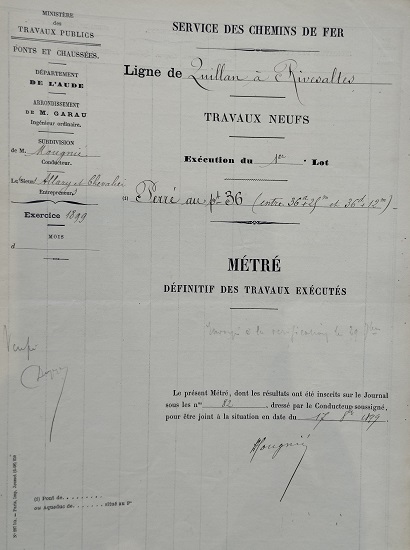 MINISTÈRE
des
TRAVAUX PUBLICS
PONTS ET CHAUSSÉES.
DÉPARTEMENT
DE L'AUDE
ARRONDISSEMENT
DE M. GARAU
Ingénieur ordinaire.
SUBDIVISION
de M. Mougnié
Conducteur.
Allary et Chevalier
Entrepreneur
Exercice 1899
MOIS
d
SERVICE DES CHEMINS DE FER
Ligne de Quillan à Rivesaltes
TRAVAUX NEUFS
Exécution du 1er Lot
(1) Perré au pt 36 (entre
MÉTRÉ
DÉFINITIF DES TRAVAUX EXÉCUTÉS
vérification le 29
Vérifié
Le présent Métré, dont les résultats ont été inscrits sur le Journal
sous les nos 82 , dressé par le Conducteur soussigné,
pour être joint à la situation en date du 17 8re 1899.
Mougnié
(1) Pont de
ou aqueduc de situé au Pt